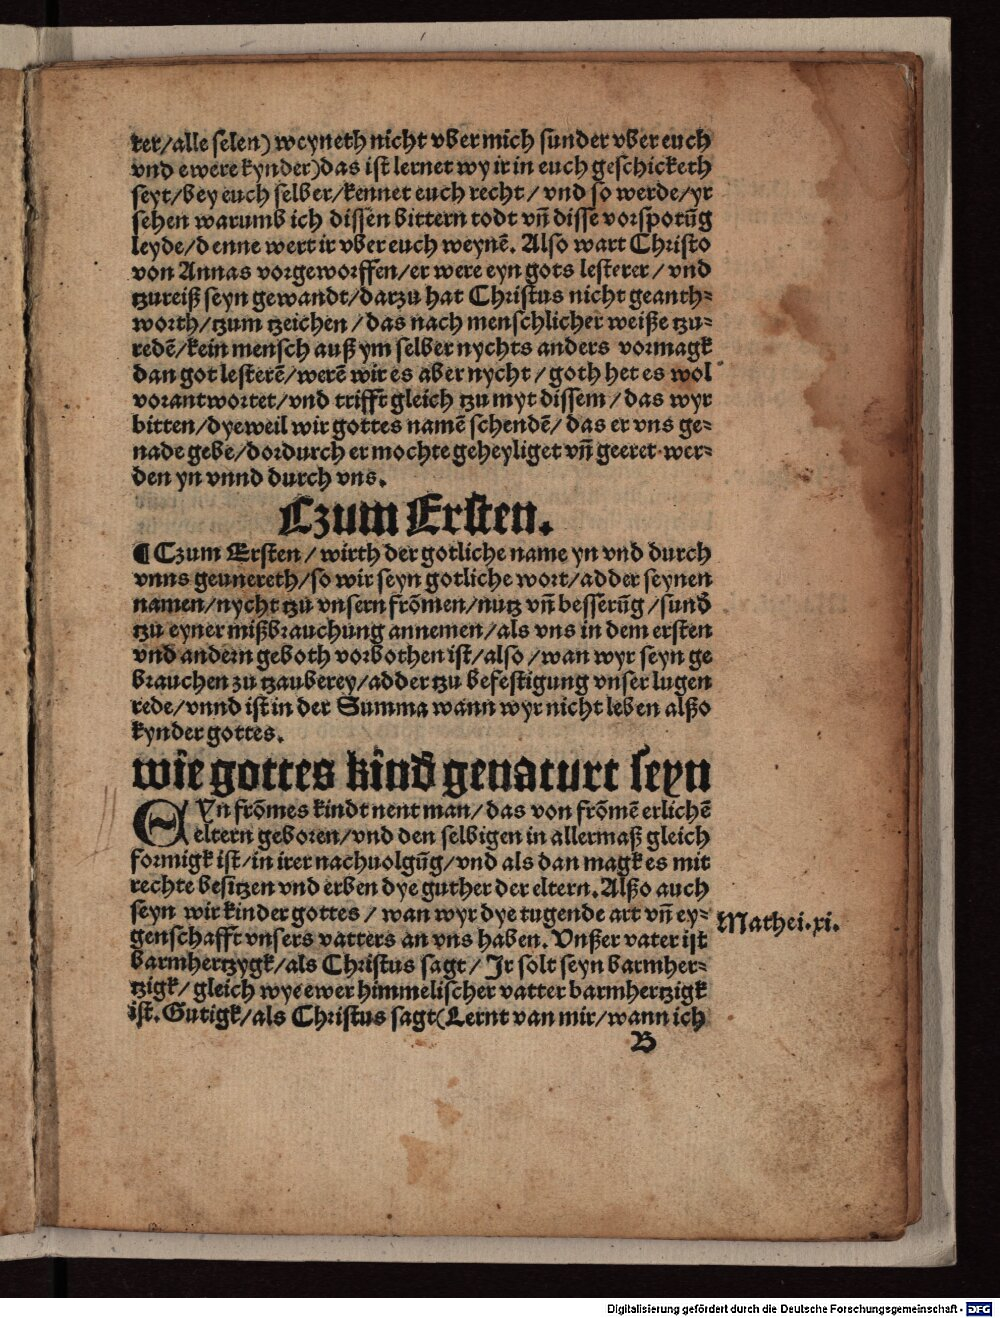 ter/alle selen) weyneth nicht vber mich sunder vber euch
vnd ewere kynder)das ist lernet wy ir in euch geschicketh
seyt/bey euch selber/kennet euch recht/ vnd so werde/yr
sehen warumb ich dissen bittern todt vñ disse vorspotūg
leyde/denne wert ir vber euch weynē. Also wart Christo
von Annas vorgeworffen/er were eyn gots lesterer/ vnd
tzureiß seyn gewandt/darzu hat Christus nicht geanth⸗
worth/tzum tzeichen/das nach menschlicher weiße tzu⸗
redē/kein mensch auß ym selber nychts anders vormagk
dan got lesterē/werē wir es aber nycht/ goth het es wol
vorantwortet/vnd trifft gleich tzu myt dissem/ das wyr
bitten/dyeweil wir gottes namē schendē/ das er vns ge⸗
nade gebe/dordurch er mochte geheyliget vñ geeret wer⸗
den yn vnnd durch vns.
Czum Ersten.
¶ Czum Ersten/ wirth der gotliche name yn vnd durch
vnns geunereth/so wir seyn gotliche wort/adder seynen
namen/nycht tzu vnsern frōmen/nutz vñ besserūg/sund̄
tzu eyner mißbrauchung annemen/als vns in dem ersten
vnd andern geboth vorbothen ist/also/wan wyr seyn ge
brauchen zu tzauberey/adder tzu befestigung vnser lugen
rede/vnnd ist in der Summa wann wyr nicht leben alßo
kynder gottes.
wie gottes kind̄ genaturt seyn
EYn frōmes kindt nent man/das von frōmē erlichē
eltern geboren/vnd den selbigen in allermaß gleich
formigk ist/in irer nachuolgūg/vnd als dan magk es mit
rechte besitzen vnd erben dye guther der eltern. Alßo auch
seyn wir kinder gottes/ wan wyr dye tugende art vñ ey⸗
genschafft vnsers vatters an vns haben. Vnßer vater ist
barmhertzygk/als Christus sagt/ Ir solt seyn barmher⸗
tzigk/gleich wye ewer himmelischer vatter barmhertzigk
ist. Gutigk/als Christus sagt(Lernt van mir/wann ich
Mathei.xi.
B
Digitalisierung gefördert durch die Deutsche Forschungsgemeinschaft - DFG